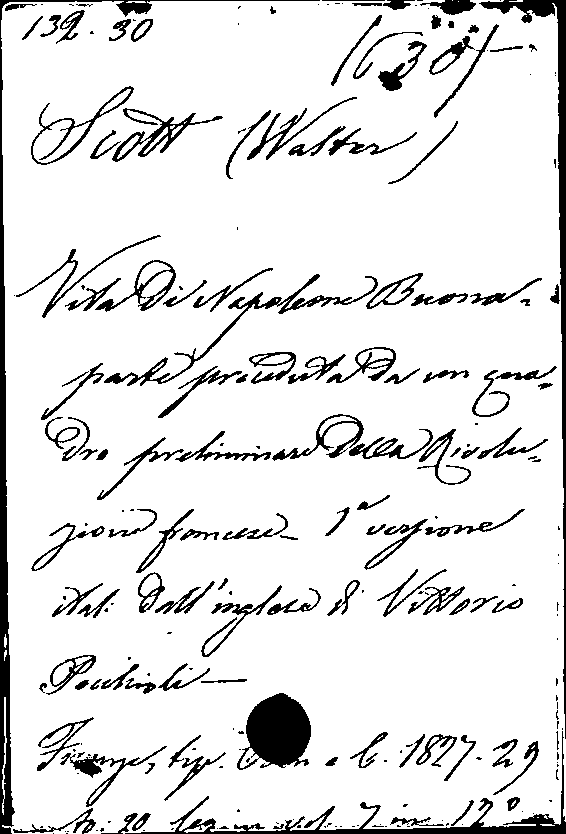 132. 30
(630)
Scott (Walter)
Vita di Napoleone Buona-
parte preceduta da un qua-
dro preliminare della Rivolu-
zione francese - 1ª versione
ital: dall'inglese di Vittorio
Pecchioli —
Firenze, tip. e C. 1827-29
to: 20 leg. in vol. 7 in 12º